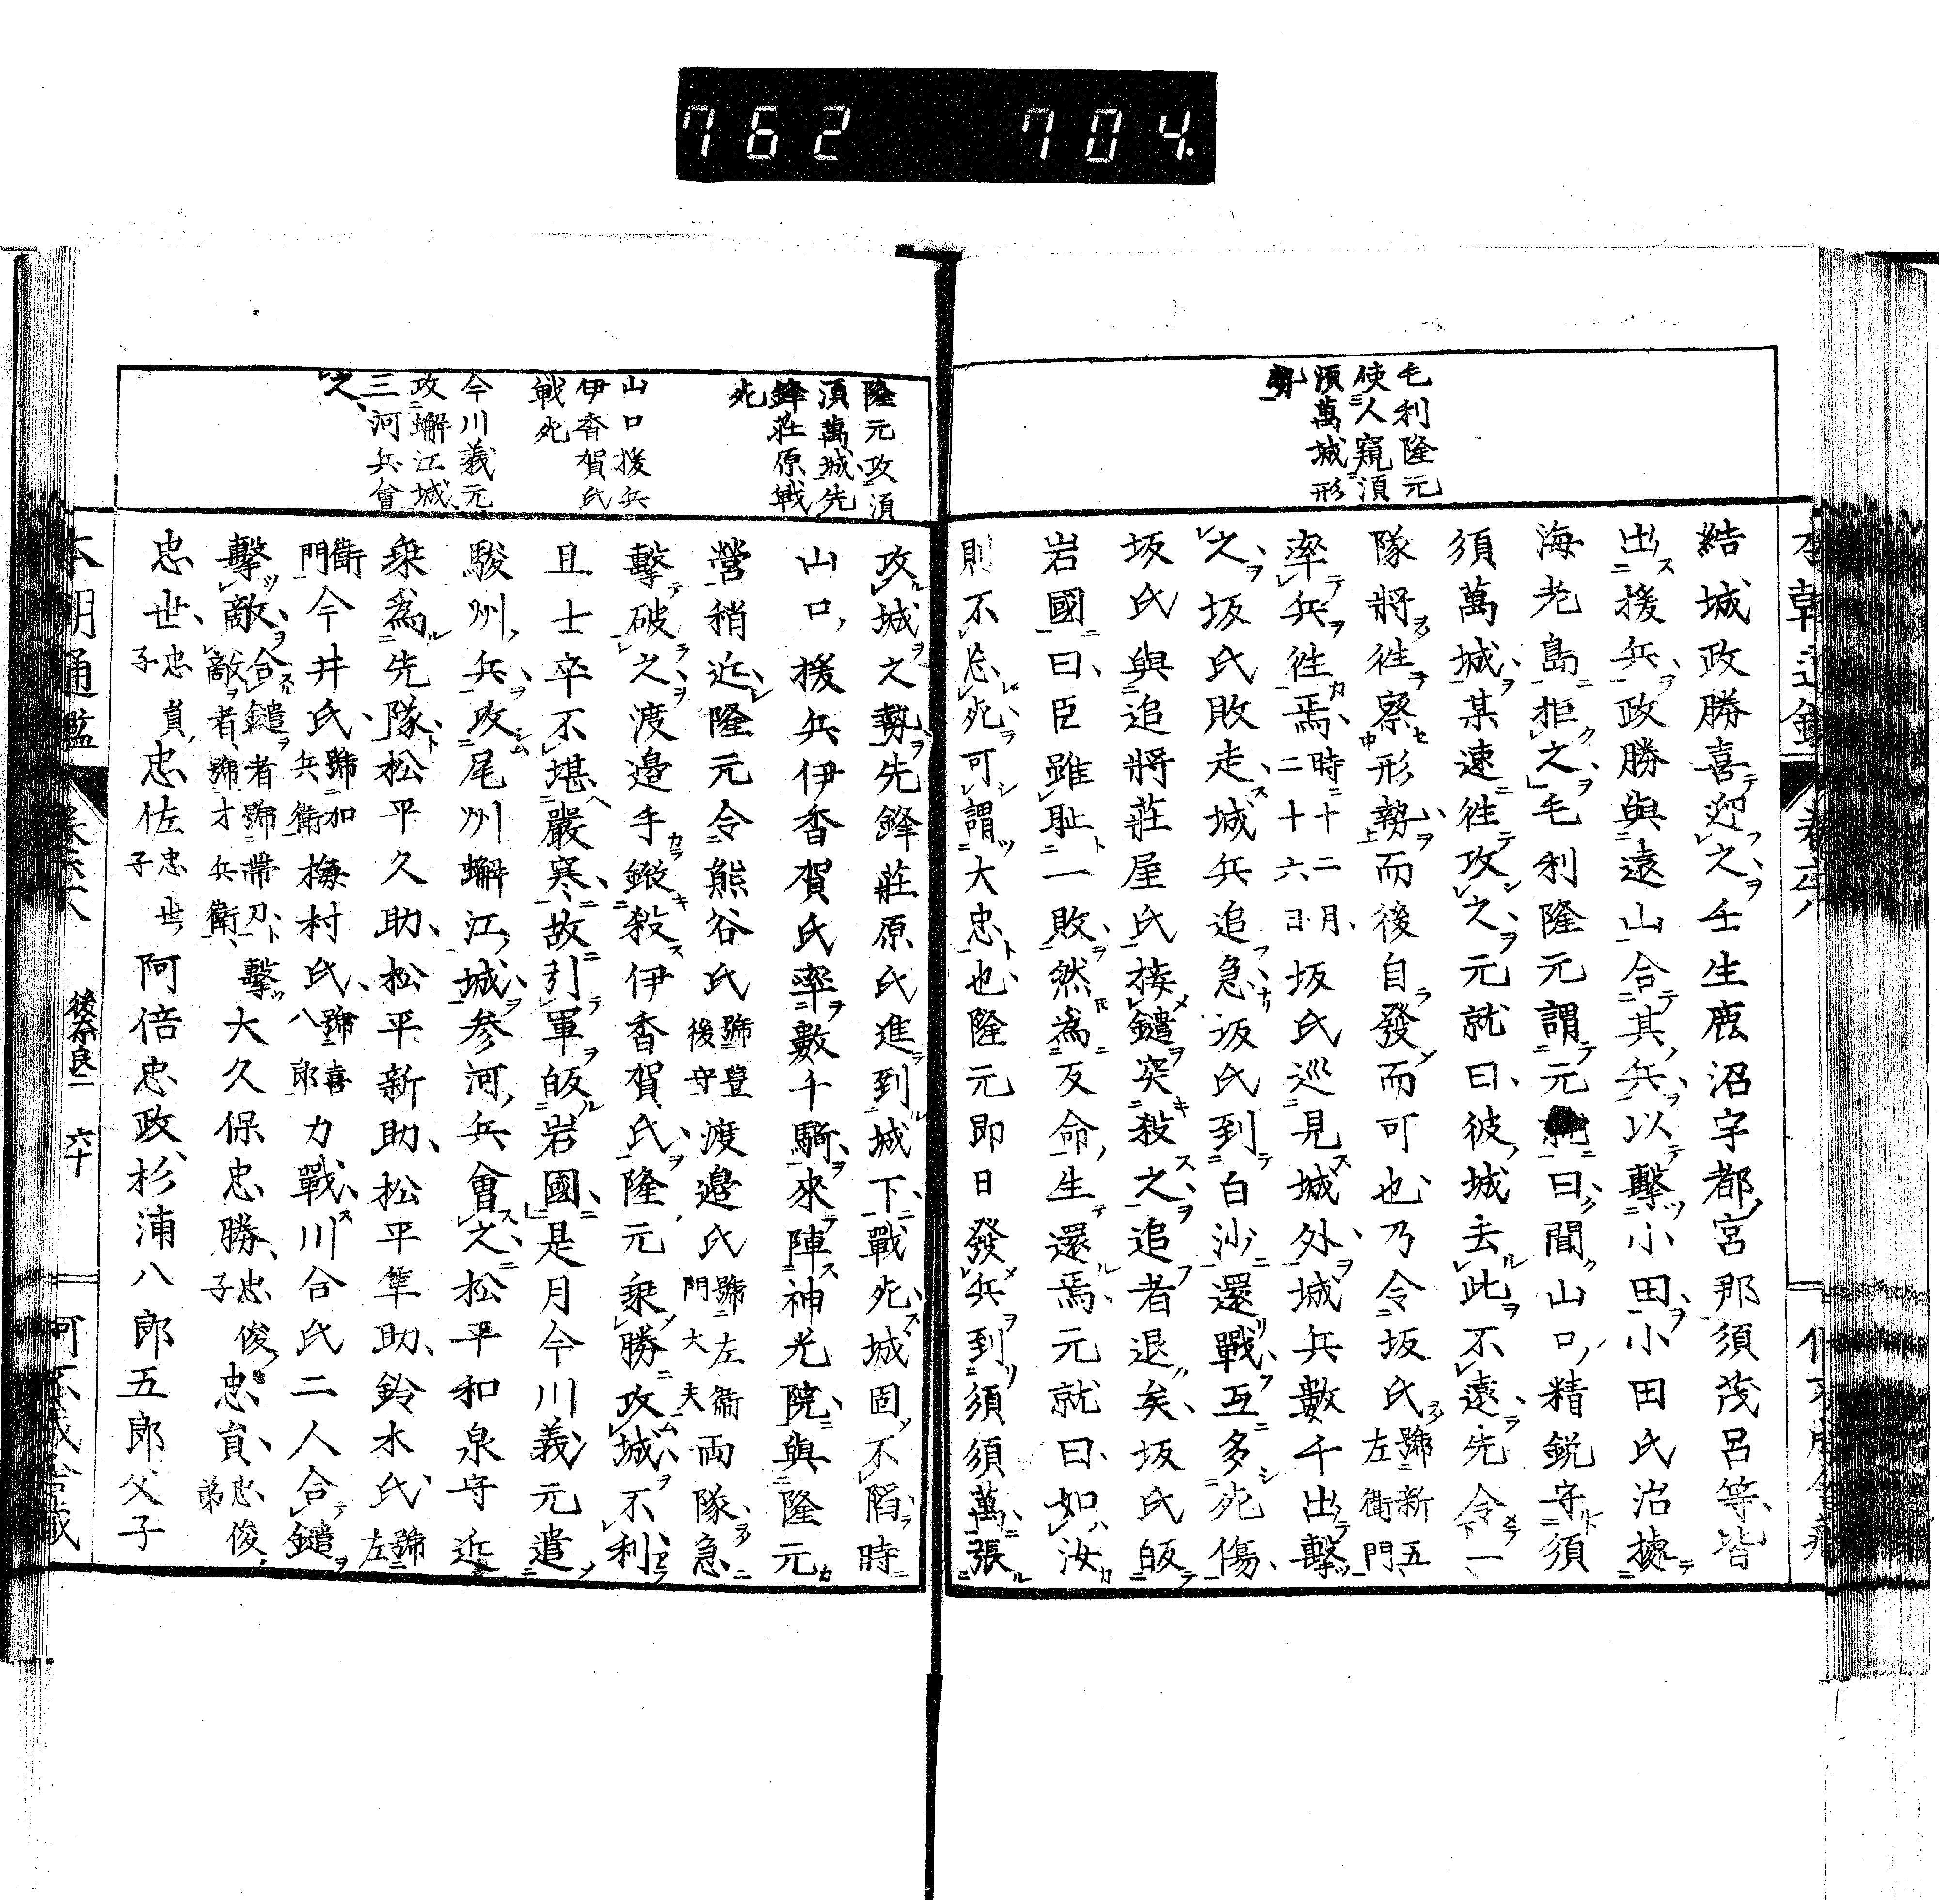 762 704
毛利隆元
使人窺湏
湏萬城形
勢
結城政勝喜迎之壬生鹿沼宇都宮那須茂呂等皆
出援兵政勝與遠山合其兵以擊小田小田氏治據
海老島拒之毛利隆元謂元就曰聞山口精銳守須
須萬城某速往攻之元就曰彼城去此不遠先令一
隊將往察形勢而後自發而可也乃令坂氏號新五左衛門
率兵往焉時十二月二十六日坂氏巡見城外城兵數千出擊
之坂氏敗走城兵追急坂氏到白沙還戰互多死傷
坂氏與追將莊屋氏接鑓突殺之追者退矣坂氏皈
岩國曰臣雖恥一敗然為反命生還焉元就曰如汝
則不忘死可謂大忠也隆元即日發兵到須須萬張
隆元攻湏
湏萬城先
鋒莊原戰
死
山口援兵
伊香賀氏
戰死
今川義元
攻蠏江城
三河兵會
之
攻城之勢先鋒莊原氏進到城下戰死城固不陷時
山口援兵伊香賀氏率數千騎來陣神光院與隆元
營稍近隆元令熊谷氏號豐後守渡邉氏號左衛門大夫兩隊急
擊破之渡邉手鎗殺伊香賀氏隆元乘勝攻城不利
且士卒不堪嚴寒故引軍皈岩國是月今川義元遣
駿州兵攻尾州蠏江城参河兵會之松平和泉守近
乗為先隊松平久助松平新助松平隼助鈴木氏號左
衛門今井氏號加兵衛梅村氏號喜八郎力戰川合氏二人合鑓
擊敵合鑓者號帶刀擊敵者號才兵衛擊大久保忠勝忠俊子忠貟忠俊弟
忠世忠貟子忠佐忠世子阿倍忠政杉浦八郎五郎父子
後奈良二 六十